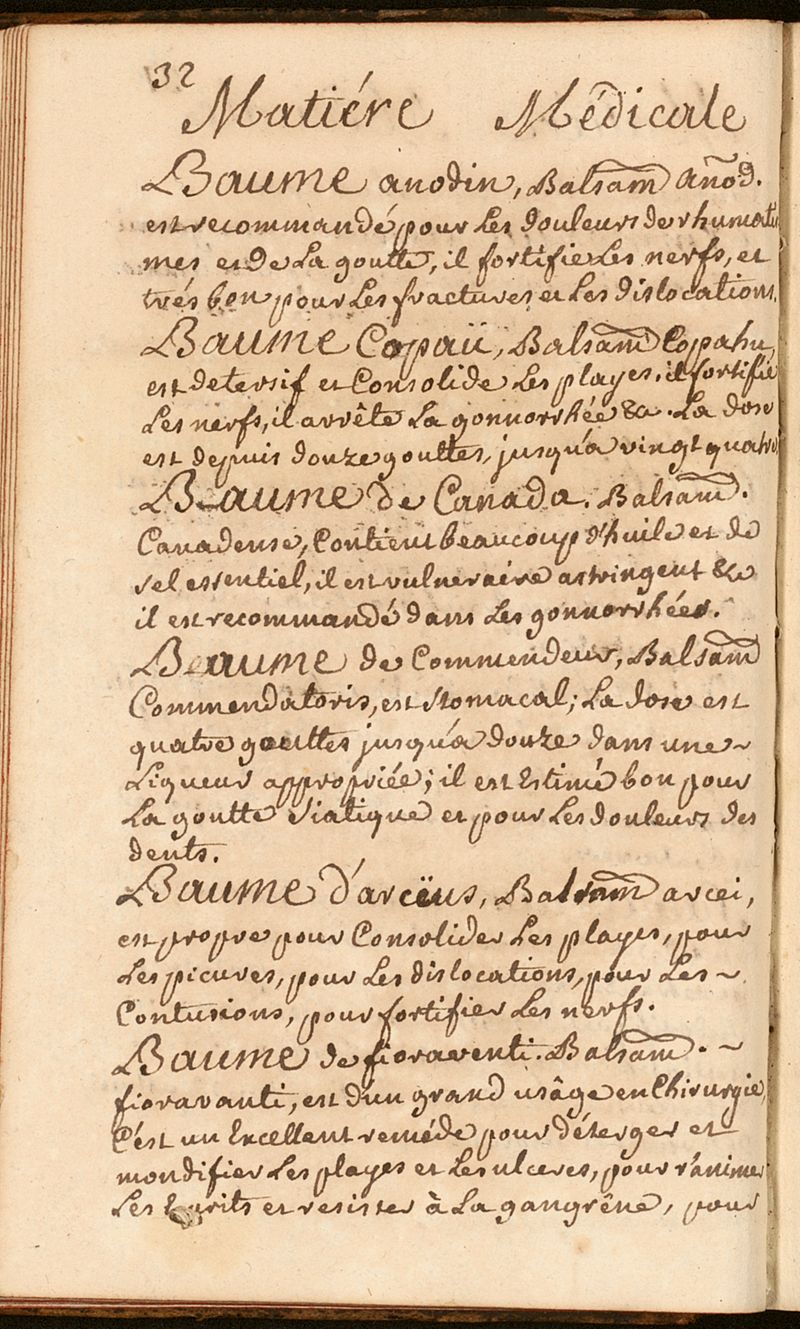 32
Matiére Médicale
Baume anodin, Balsam anod.
est recommandé pour Les douleurs de rhumatis
mes et de La goutte, il fortifie Les nerfs, et
trés bon pour Les fractures et Les dislocations.
Baume Copaü, Balsam Copahu,
est detersif et Consolide Les playes, il fortifie
Les nerfs, il arrête La gonnorrhée &c. La dose
est depuis douze gouttes, jusqu'a vingt quatre
Beaume de Canada. Balsam.
Canadense, Contient beaucoup d'huile et de
sel essentiel, il est vulneraire astringent &c
il est recommandé dans Les gonnorrhées.
Beaume de Commendeur, Balsam
Commendatoris, est stomacal; La dose est
quatre gouttes jusqu'a douze dans une~
Liqueur appropriée; il est Estimé bon pour
La goutte siatique et pour Les douleurs des
dents.
Baume d'arcëus, Balsam arcei,
est propre pour Consolider Les playes, pour
Les picures, pour Les dislocations, pour Les~
Contusions, pour fortifier Les nerfs.
Baume de fioraventi. Balsam. ~
fioravanti, est d'un grand usâge en Chirurgie,
C'est un Excellent reméde pour déterger et
mondifier Les playes et Les ulceres, pour r'animer
Les Esprits et resister à La gangrêne, pour